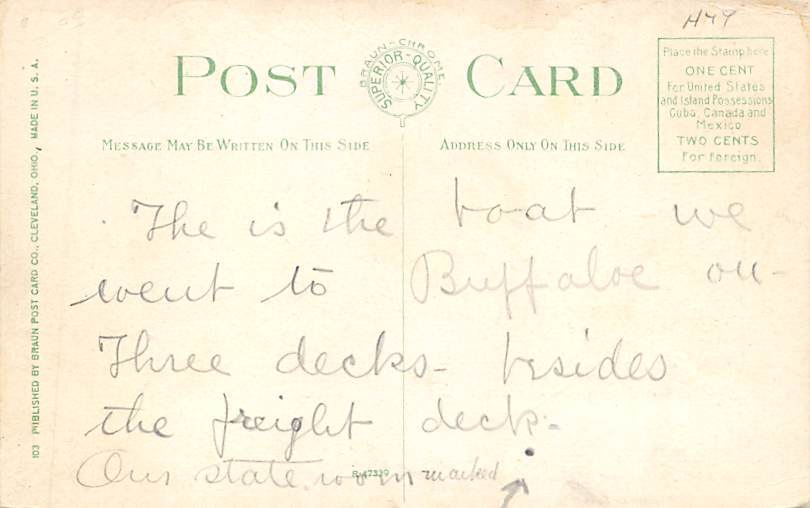 H49
POST CARD
BRAUN-CHROME
SUPERIOR-QUALITY
Place the Stamp here
ONE CENT
For United States
and Island Possessions
Cuba, Canada and
Mexico
TWO CENTS
For Foreign.
MESSAGE MAY BE WRITTEN ON THIS SIDE
ADDRESS ONLY ON THIS SIDE
The is the boat we
went to Buffaloe on-
Three decks- besides
the freight deck-
Our state room marked
R-47339
103 PUBLISHED BY BRAUN POST CARD CO., CLEVELAND, OHIO., MADE IN U. S. A.